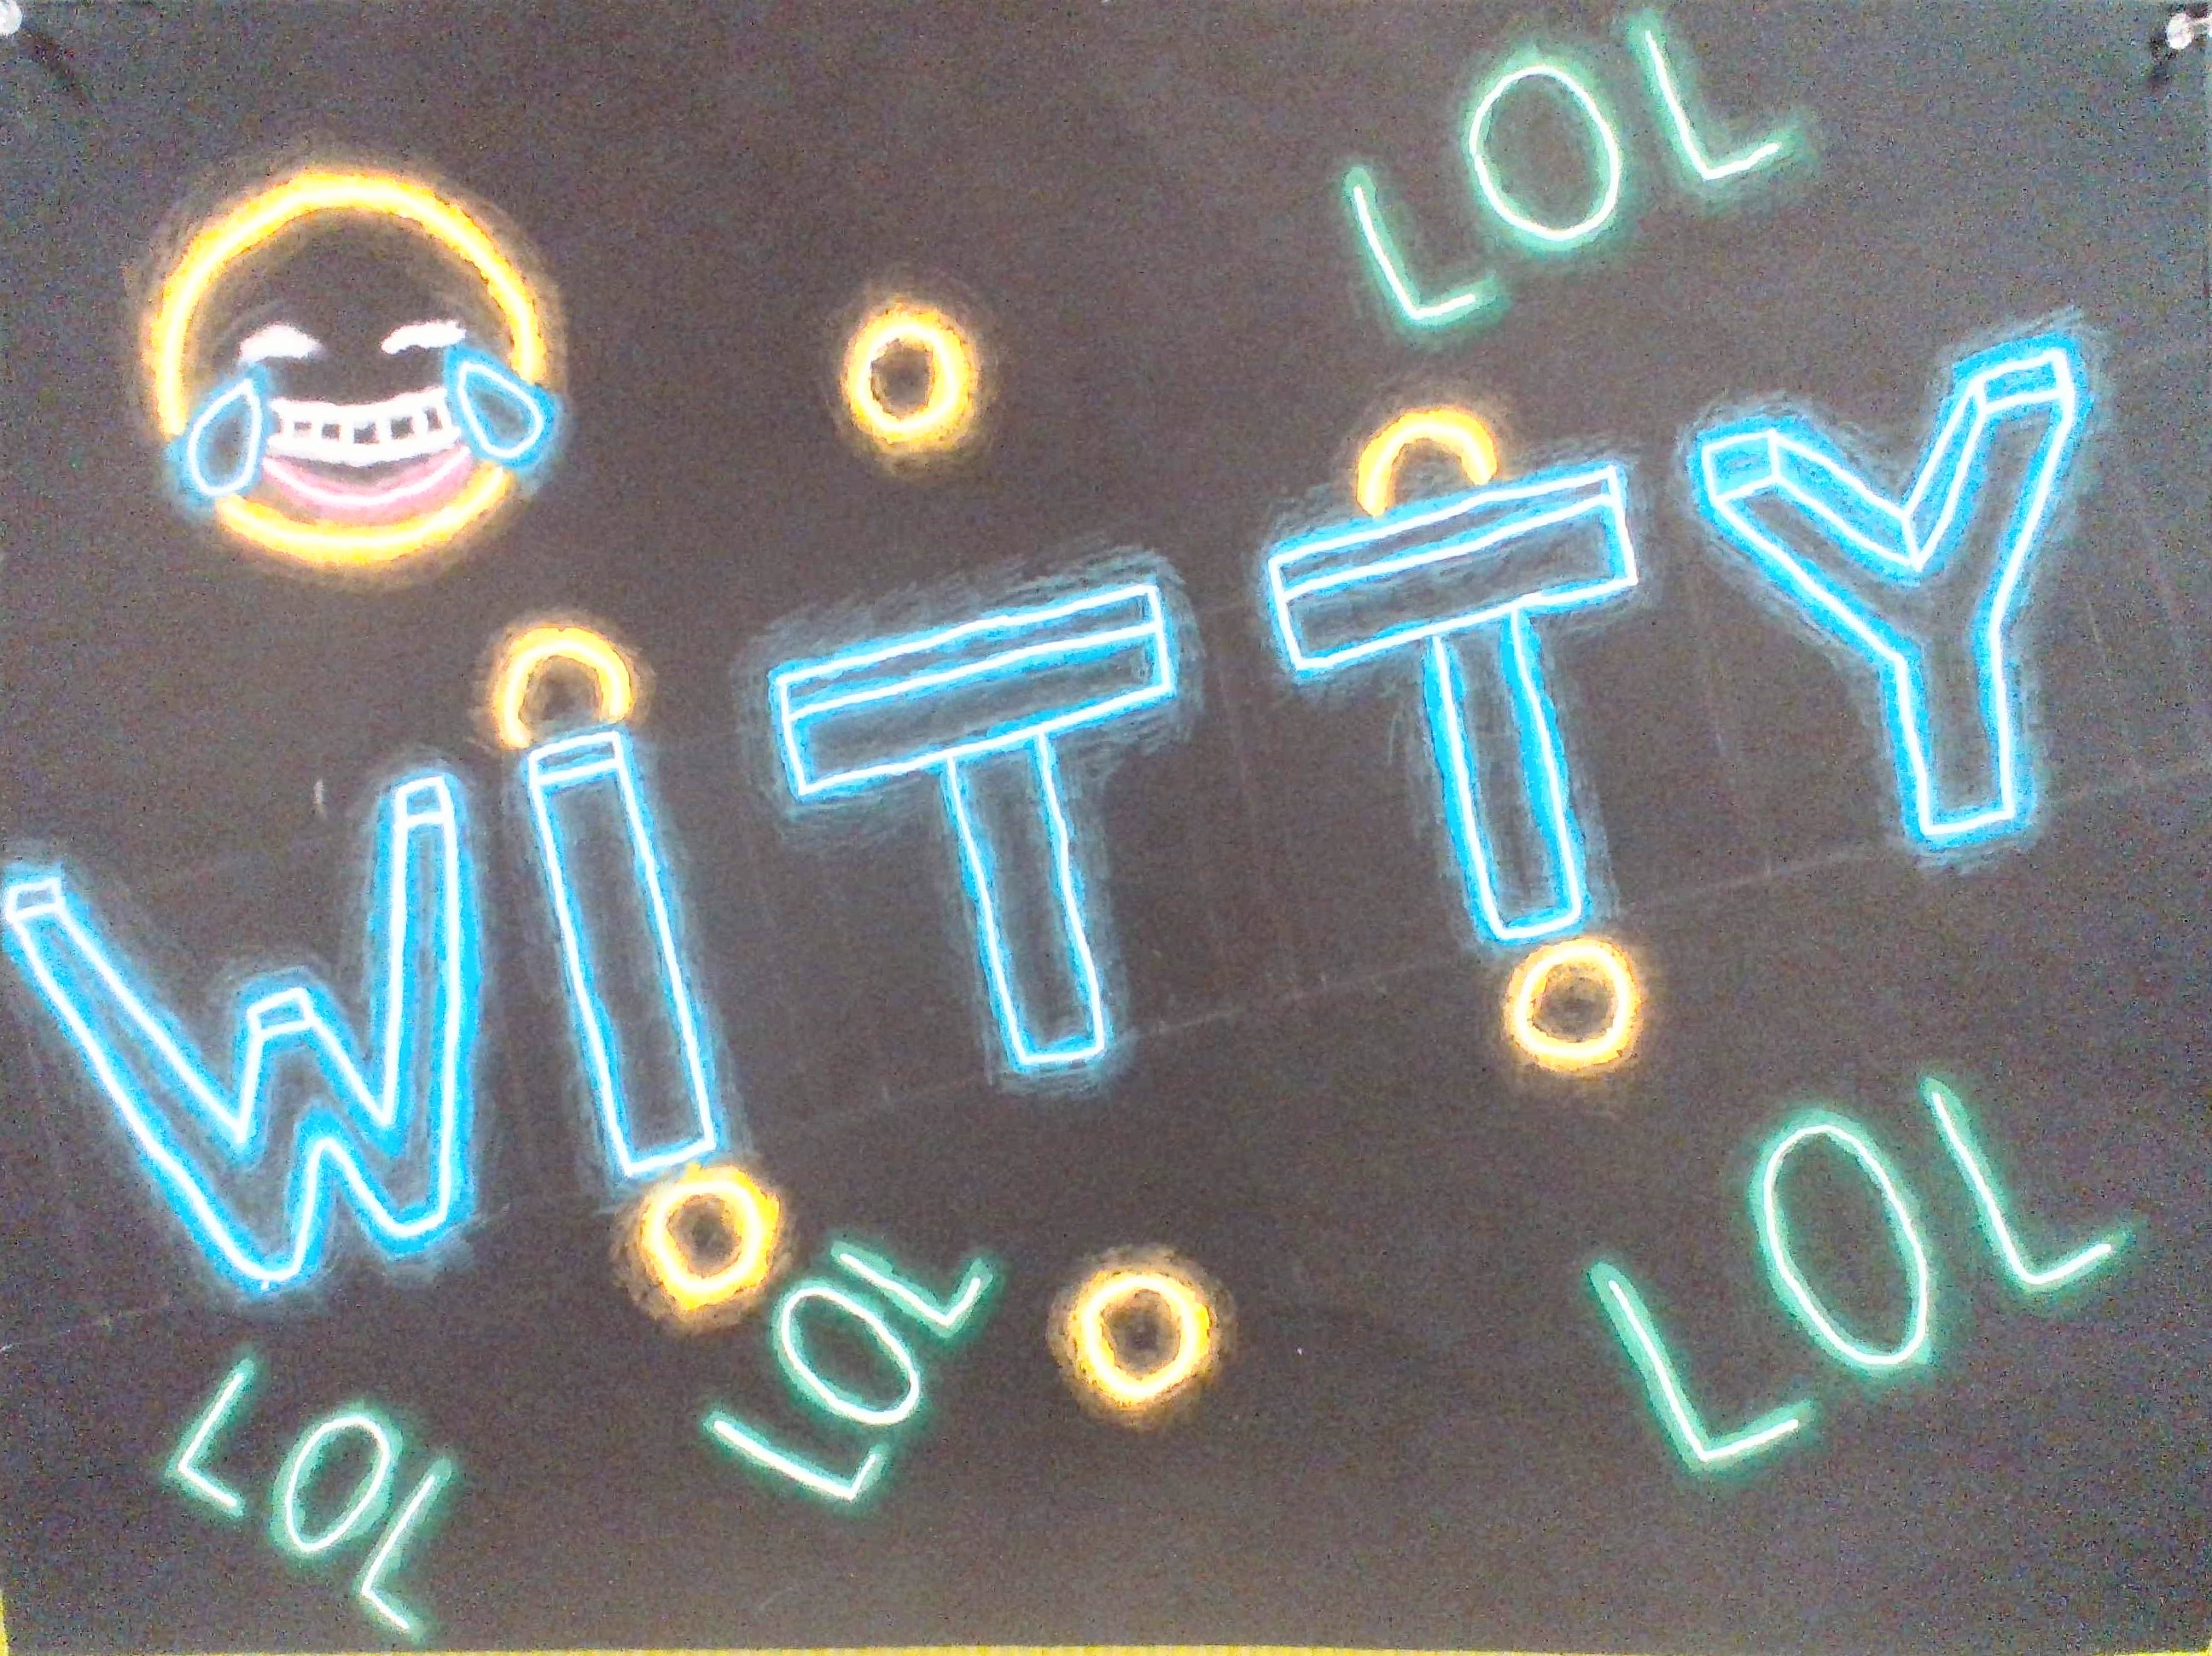 LOL
WITTY
LOL
LOL
LOL